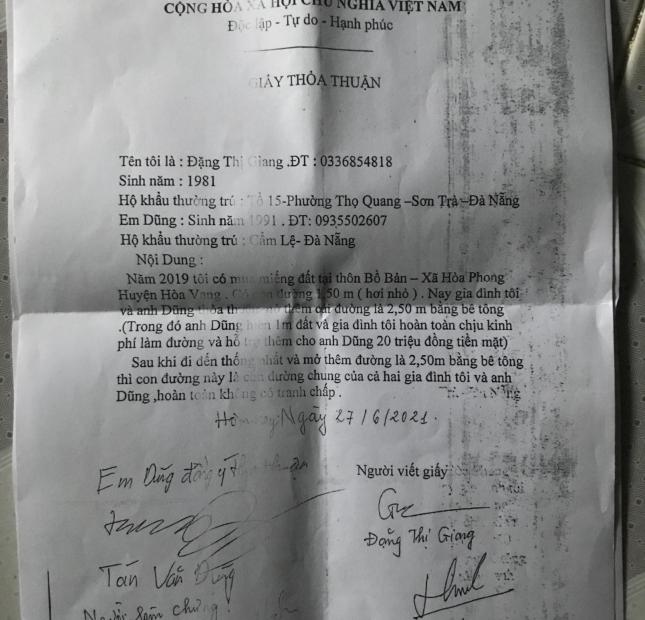 CỘNG HÒA XÃ HỘI CHỦ NGHĨA VIỆT NAM
Độc lập - Tự do - Hạnh phúc
GIẤY THỎA THUẬN
Tên tôi là : Đặng Thị Giang .ĐT : 0336854818
Sinh năm : 1981
Hộ khẩu thường trú : Tổ 15-Phường Thọ Quang –Sơn Trà –Đà Nẵng
Em Dũng : Sinh năm 1991 . ĐT: 0935502607
Hộ khẩu thường trú : Cẩm Lệ- Đà Nẵng
Nội Dung :
Năm 2019 tôi có mua miếng đất tại thôn Bồ Bản – Xã Hòa Phong
Huyện Hòa Vang . Có con đường 1,50 m ( hơi nhỏ ) . Nay gia đình tôi
và anh Dũng thỏa thuận mở thêm đường là 2,50 m bằng bê tông
.(Trong đó anh Dũng hiến 1m đất và gia đình tôi hoàn toàn chịu kinh
phí làm đường và hỗ trợ thêm cho anh Dũng 20 triệu đồng tiền mặt)
Sau khi đi đến thống nhất và mở thêm đường là 2,50m bằng bê tông
thì con đường này là con đường chung của cả hai gia đình tôi và anh
Dũng ,hoàn toàn không có tranh chấp .
Hôm nay Ngày 27/6/2021.
Em Dũng đồng ý thỏa thuận
Người viết giấy
Đặng Thị Giang
Tán Văn Dũng
Người làm chứng